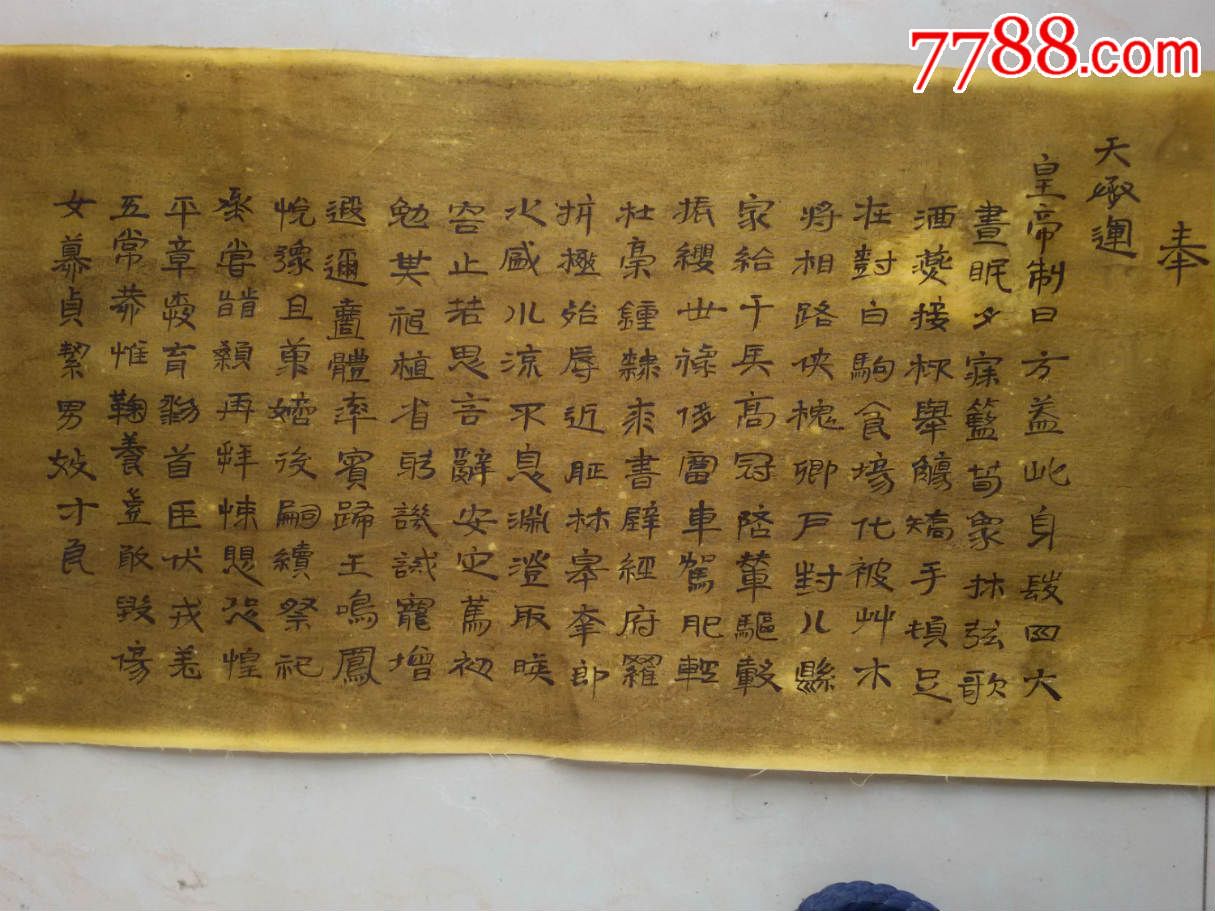 7788.com
奉
天承運
皇帝制曰方蓋此身髮四大
晝眠夕寐籃筍象牀弦歌
酒讌接杯舉觴矯手頓足
在對白駒食場化被艸木
將相路俠槐卿戶封八縣
家給千兵高冠陪輦驅轂
振纓世祿侈富車駕肥輕
杜稾鍾隸漆書壁經府羅
抗極殆辱近恥林皋幸即
之盛川流不息淵澄取暎
容止若思言辭安定篤初
勉其祗植省躬譏誡寵增
遐邇壹體率賓歸王鳴鳳
悅豫且康嫡後嗣續祭祀
烝嘗稽顙再拜悚懼恐惶
平章愛育黎首臣伏戎羌
五常恭惟鞠養豈敢毀傷
女慕貞絜男效才良